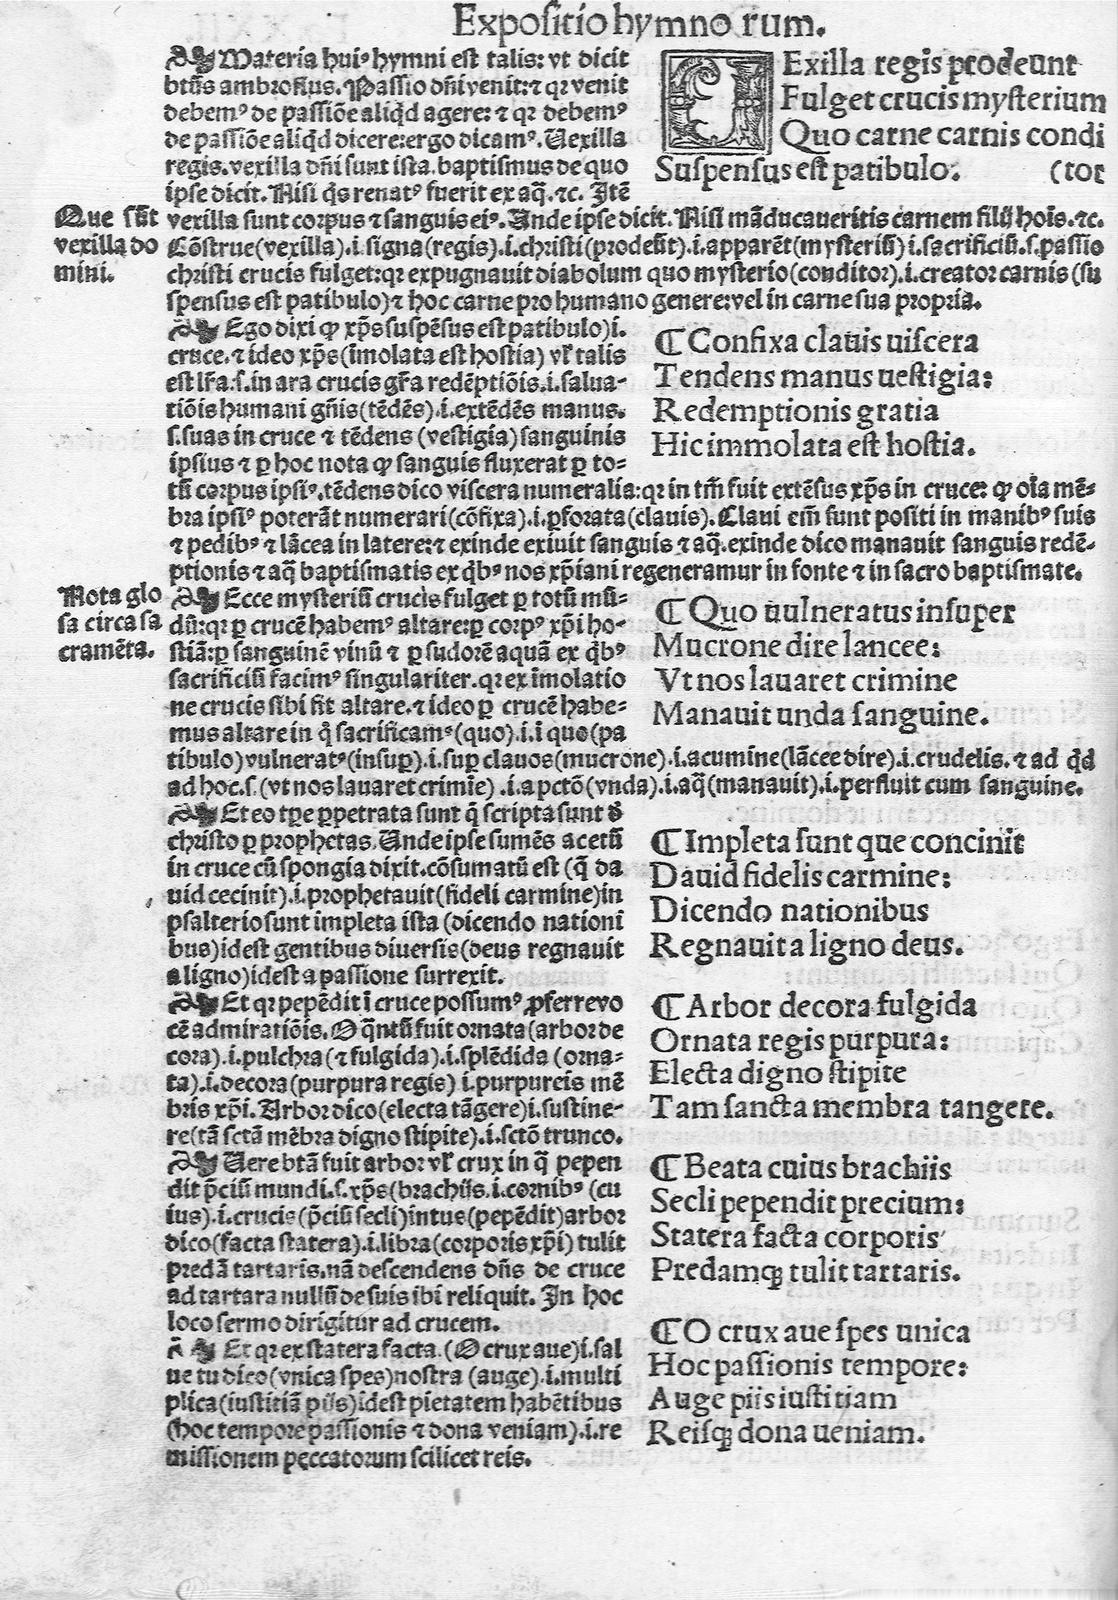 Expositio hymno rum.
Materia huiꝰ hymni est talis: vt dicit
btūs ambrosius. Passio dñi venit: ⁊ qꝛ venit
debemꝰ de passiōe aliqd agere: ⁊ qꝛ debemꝰ
de passiōe aliqd dicere: ergo dicamꝰ. Uexilla
regis. vexilla dñi sunt ista. baptismus de quo
ipse dicit. Nisi qs renatꝰ fuerit ex aq̄. ⁊c. Itē
Exilla regis prodeunt
Fulget crucis mysterium
Quo carne carnis condi
Suspensus est patibulo: (tor
Que sūt
vexilla do
mini.
vexilla sunt corpus ⁊ sanguis eiꝰ. Unde ipse dicit. Nisi māducaueritis carnem filij hoīs. ⁊c.
Cōstrue (vexilla) .i. signa (regis) .i. christi (prodeūt) .i. apparēt (mysteriū) .i. sacrificiū. s. passio
christi crucis fulget: qꝛ expugnauit diabolum quo mysterio (conditor) .i. creator carnis (su
spensus est patibulo) ⁊ hoc carne pro humano genere: vel in carne sua propria.
Ego dixi ꝙ xp̄s suspēsus est patibulo) i.
cruce. ⁊ ideo xp̄s (īmolata est hostia) vl' talis
est lr̄a. s. in ara crucis gr̄a redēptiōis. i. salua-
tiōis humani gn̄is (tēdēs) .i. extēdēs manus.
s. suas in cruce ⁊ tēdens (vestigia) sanguinis
ipsius ⁊ ꝑ hoc nota ꝙ sanguis fluxerat ꝑ to=
¶ Confixa clauis uiscera
Tendens manus uestigia:
Redemptionis gratia
Hic immolata est hostia.
tū corpus ipsiꝰ. tēdens dico viscera numeralia: qꝛ in tm̄ fuit extēsus xp̄s in cruce: ꝙ oīa mē=
bra ipsiꝰ poterāt numerari (cōfixa) .i. ꝑforata (clauis). Claui em̄ sunt positi in manibꝰ suis
⁊ pedibꝰ ⁊ lācea in latere: ⁊ exinde exiuit sanguis ⁊ aq̄. exinde dico manauit sanguis redē=
ptionis ⁊ aq̄ baptismatis ex qbꝰ nos xp̄iani regeneramur in fonte ⁊ in sacro baptismate.
Nota glo
sa circa sa
cramēta.
Ecce mysteriū crucis fulget ꝑ totū mū=
dū: qꝛ ꝑ crucē habemꝰ altare: ꝑ corpꝰ xp̄i ho-
stiā: ꝑ sanguinē vinū ⁊ ꝑ sudorē aquā ex qbꝰ
sacrificiū facimꝰ singulariter. qꝛ ex īmolatio
ne crucis sibi fit altare. ⁊ ideo ꝑ crucē habe=
mus altare in q̄ sacrificamꝰ (quo) .i. i quo (pa
¶ Quo uulneratus insuper
Mucrone dire lancee:
Vt nos lauaret crimine
Manauit unda sanguine.
tibulo) vulneratꝰ (insuꝑ) .i. suꝑ clauos (mucrone) .i. acumine (lācee dire) .i. crudelis. ⁊ ad qd
ad hoc. s. (vt nos lauaret crimīe) .i. a pctō (vnda) .i. aq̄ (manauit) .i. perfluit cum sanguine.
Et eo tꝑe ꝑpetrata sunt q̄ scripta sunt đ
christo ꝑ prophetas. Unde ipse sumēs acetū
in cruce cū spongia dixit. cōsumatū est (q̄ da
uid cecinit) .i. prophetauit (fideli carmine) in
psalterio sunt impleta ista (dicendo nationi
bus) idest gentibus diuersis (deus regnauit
a ligno) idest a passione surrexit.
¶ Impleta sunt que concinit
Dauid fidelis carmine:
Dicendo nationibus
Regnauit a ligno deus.
Et qꝛ pepēdit ī cruce possumꝰ ꝓferre vo
cē admiratiōis. O q̄ntū fuit ornata (arbor de
cora) .i. pulchra (⁊ fulgida) .i. splēdida (orna=
ta) .i. decora (purpura regis) i. purpureis mē
bris xp̄i. Arbor dico (electa tāgere) i. sustine-
re (tā sctā mēbra digno stipite) .i. sctō trunco.
¶ Arbor decora fulgida
Ornata regis purpura:
Electa digno stipite
Tam sancta membra tangere.
Uere btā fuit arbor vl' crux in q̄ pepen
dit p̄ciū mundi. s. xp̄s (brachijs .i. cornibꝰ (cu
ius) .i. crucis (p̄ciū secli) intus (pepēdit) arbor
dico (facta statera) .i. libra (corporis xp̄i) tulit
predā tartaris. nā descendens dn̄s de cruce
ad tartara nullū de suis ibi reliquit. In hoc
loco sermo dirigitur ad crucem.
¶ Beata cuius brachiis
Secli pependit precium:
Statera facta corporis
Predamqꝫ tulit tartaris.
Et qꝛ ex statera facta. (O crux aue) i. sal
ue tu dico (vnica spes) nostra (auge) .i. multi
plica (iustitiā pijs) idest pietatem habētibus
(hoc tempore passionis ⁊ dona veniam) .i. re
missionem peccatorum scilicet reis.
¶ O crux aue spes unica
Hoc passionis tempore:
Auge piis iustitiam
Reisqꝫ dona ueniam.